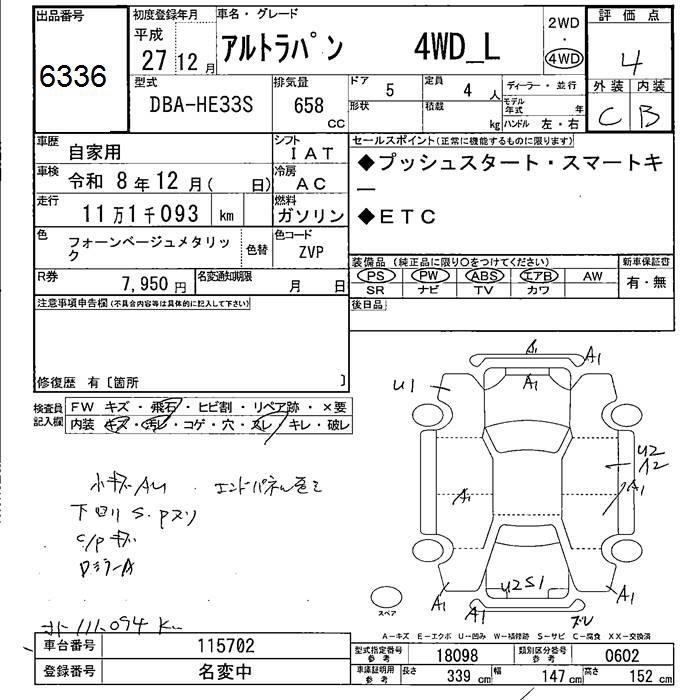 出品番号 初度登録年月 車名・グレード 評価点
6336 平成 27 12月 アルトラパン 4WD_L 2WD 4WD 4
型式 排気量 ドア 5 定員 4 人 ディーラー・並行 外装 内装
DBA-HE33S 658 CC 形状 積載 kg モデル年式 年 ハンドル 左・右 C B
車歴 自家用 シフト IAT セールスポイント(正常に機能するものに限ります)
車検 令和 8年12月( 日) 冷房 AC ◆プッシュスタート・スマートキ
ー
走行 11万1千093 km 燃料 ガソリン ◆ETC
色 フォーンベージュメタリッ
ク 色替 色コード ZVP
装備品(純正品に限り○をつけてください) 新車保証書
R券 7,950円 名変通知期限 月 日 PS PW ABS エアB AW 有・無
SR ナビ TV カワ
注意事項申告欄(不具合内容等は具体的に記入して下さい) 後日品
修復歴 有〔箇所 〕
検査員記入欄 FW キズ・飛石・ヒビ割・リペア跡・×要
内装 キズ・汚レ・コゲ・穴・スレ・キレ・破レ
A1 A1
U1 A1
U2
A2
A1 A1
小キズAU
下回りS.
C/Pキズ
U2S1
A1 A1 A1
スペア
111,094 Km
A-キズ E-エクボ U-凹み W-補修跡 S-サビ C-腐食 XX-交換済
車台番号 115702 型式指定番号 参考 18098 類別区分番号 参考 0602
登録番号 名変中 車庫証明用 参考 長さ 339 cm 幅 147 cm 高さ 152 cm